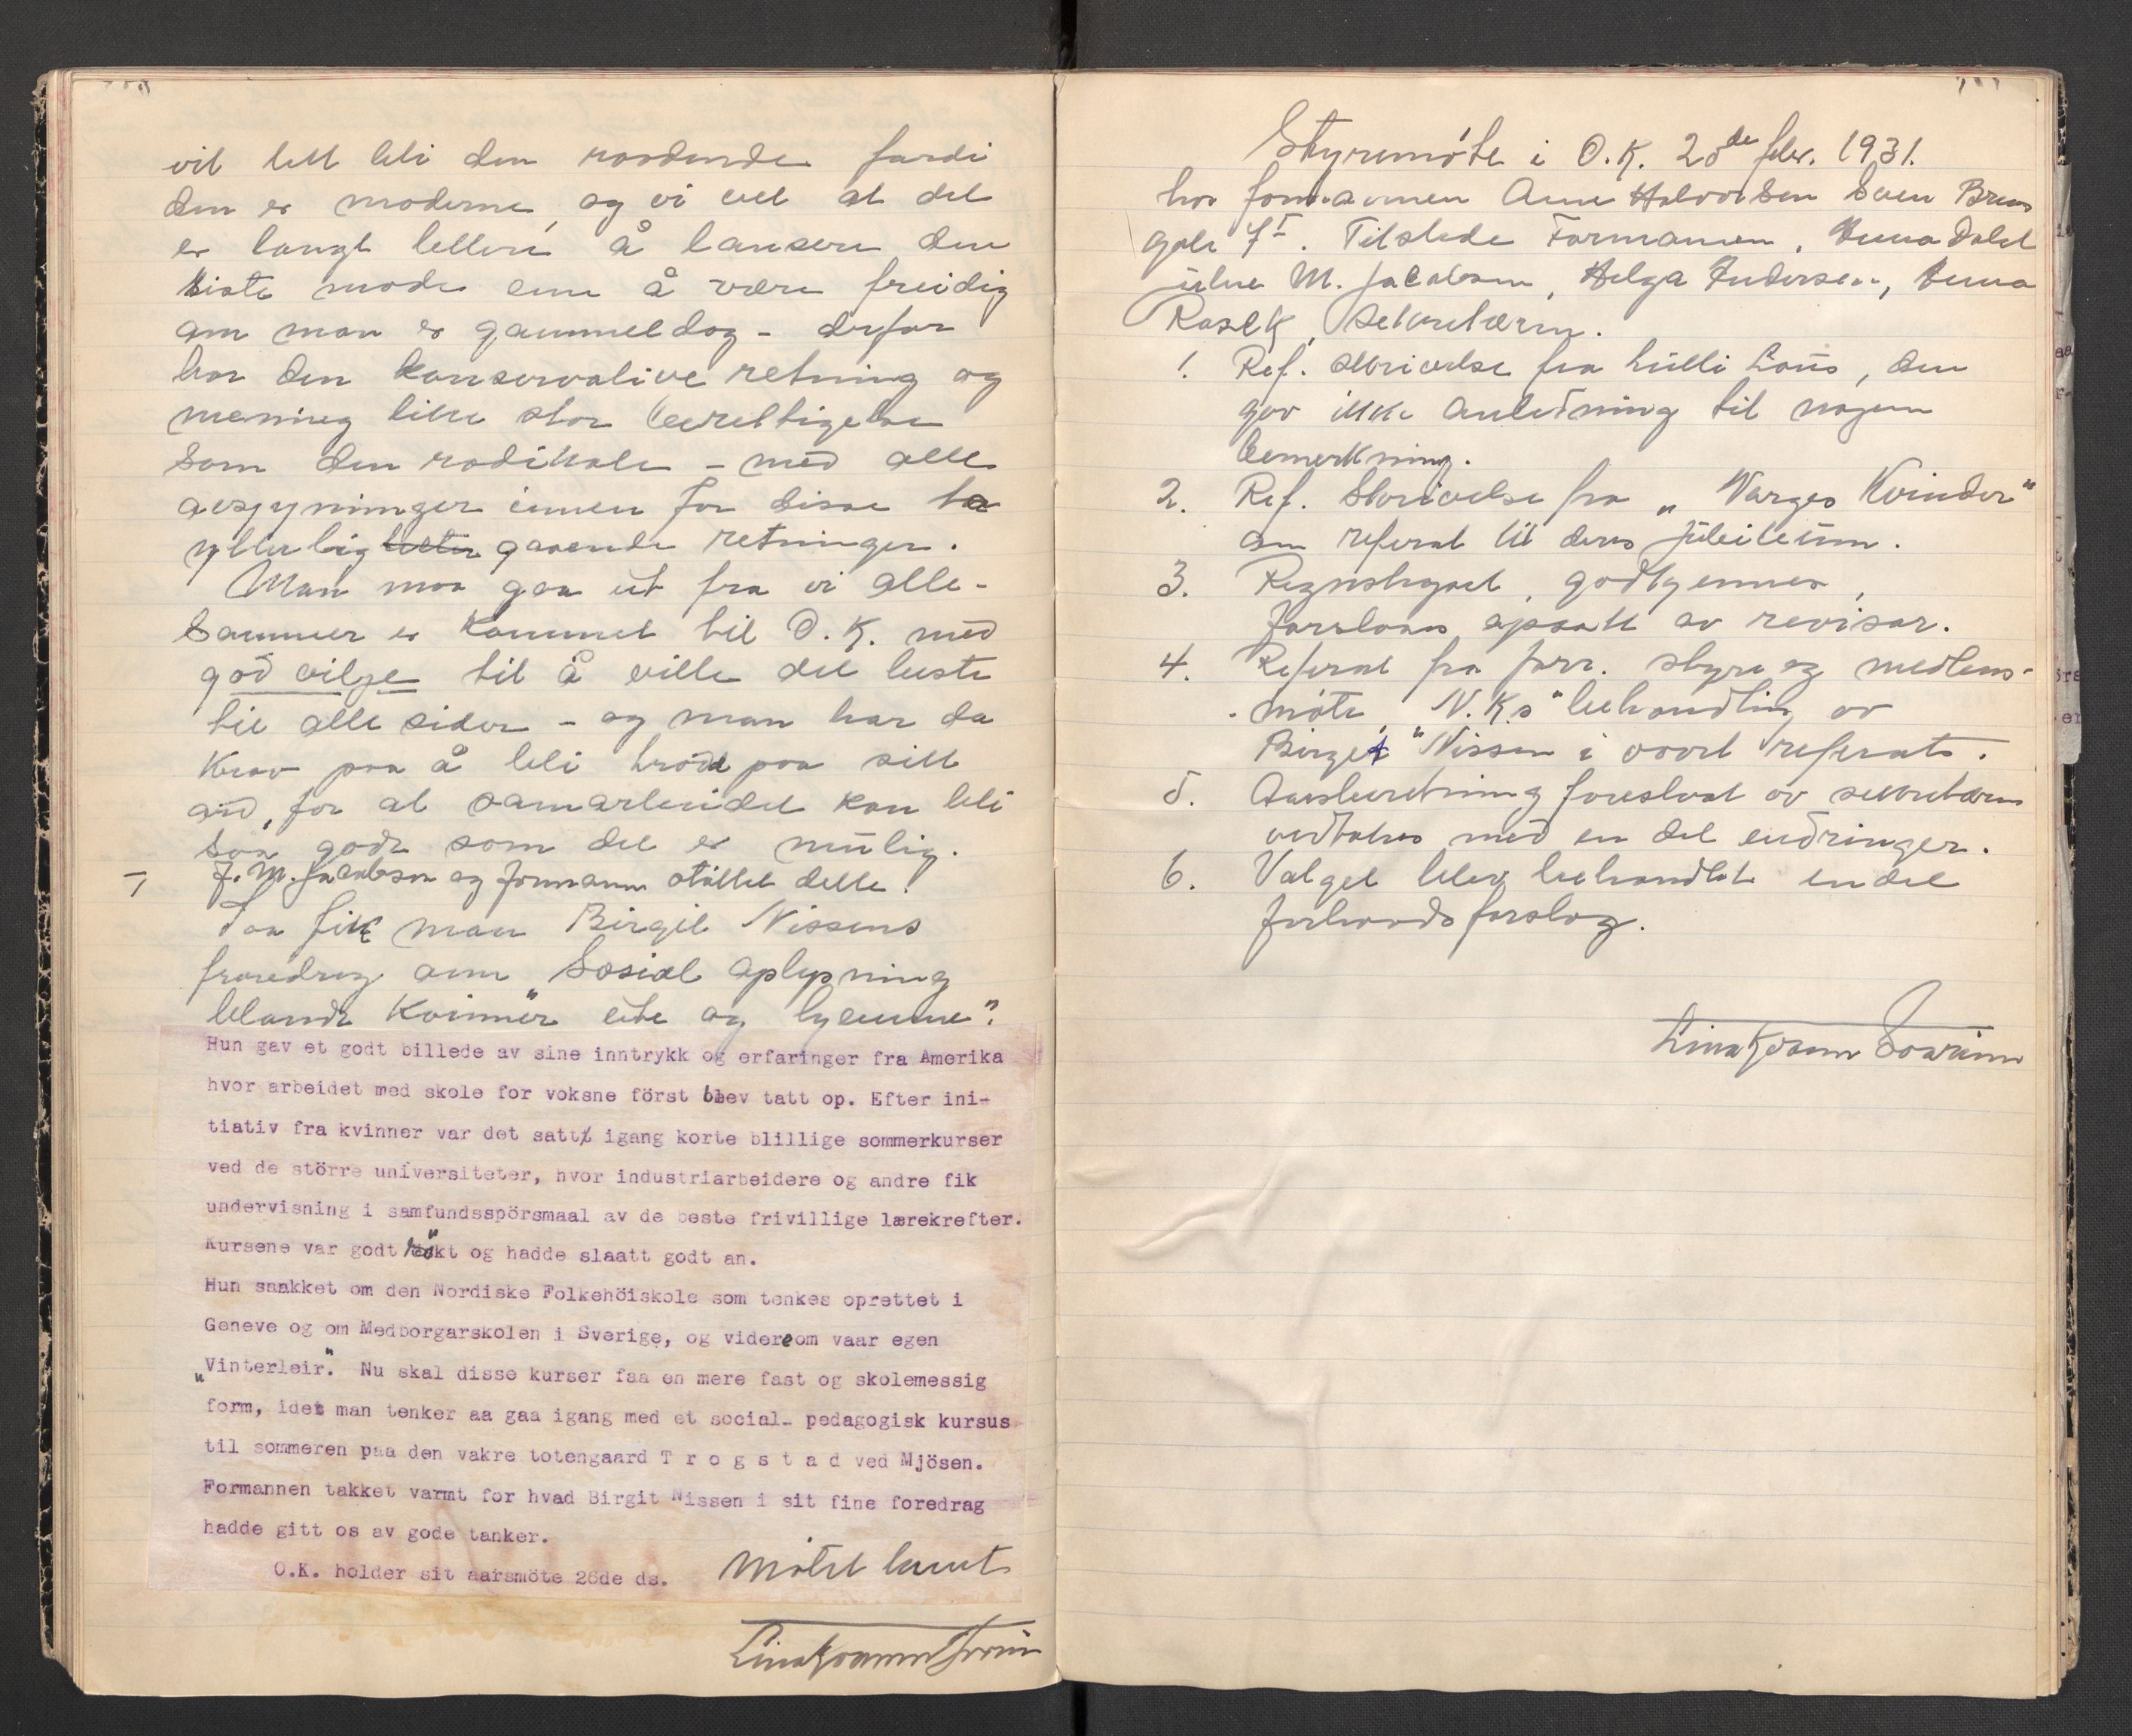 vil lett bli den raadende fordi
den er moderne, og vi vet at det
er langt lettere å lansere den
siste mode enn å være freidig
om man er gammeldag - derfor
har den konservative retning og
mening like stor berettigelse
som den radikale - med alle
avskygninger innen for disse to
ytterlig gaaende retninger.
Man maa gaa ut fra vi alle-
sammen er kommet til O.K. med
god vilje til å ville det beste
til alle sider - og man har da
krav paa å bli trodd paa sitt
ord, for at samarbeidet kan bli
saa godt som det er mulig.
F. M. Jacobsen og formann støttet dette.
Saa fik man Birgit Nissens
foredrag om "Sosial oplysning
blandt kvinner" ute og hjemme".
Hun gav et godt billede av sine inntrykk og erfaringer fra Amerika
hvor arbeidet med skole for voksne först blev tatt op. Efter ini-
tiativ fra kvinner var det satt igang korte blillige sommerkurser
ved de större universiteter, hvor industriarbeidere og andre fik
undervisning i samfundsspörsmaal av de beste frivillige lærekrefter.
Kursene var godt rökt og hadde slaatt godt an.
Hun snakket om den Nordiske Folkehöiskole som tenkes oprettet i
Geneve og om Medborgarskolen i Sverige, og videre om vaar egen
"Vinterleir". Nu skal disse kurser faa en mere fast og skolemessig
form, idet man tenker aa gaa igang med et social- pedagogisk kursus
til sommeren paa den vakre totengaard T r o g s t a d ved Mjösen.
Formannen takket varmt for hvad Birgit Nissen i sit fine foredrag
hadde gitt os av gode tanker.
O.K. holder sit aarsmöte 26de ds. Møtet hevet
Styremöte i O.K. 20de febr. 1931.
hos formannen Anne Halvorsen Sven Bruns
gate 7I. Tilstede Formannen, Anna Dahl
M. Jacobsen, Helga Andersen, Anna
Rasck, sekretæren.
1. Ref. skrivelse fra Lulli Lous, den
gav ikke anledning til nogen
bemerkning.
2. Ref. Skrivelse fra "Norges Kvinder"
om referat til deres jubileum.
3. Regnskapet godkjennes,
forslaas opsatt av revisor.
4. Referat fra forr. styre og medlems-
møte, "N.K.s" behandling av
Birgit Nissen i vaart referat.
5. Aarsberetning foreslaat av sekretæren
vedtokes med en del endringer.
6. Valget blev behandlet endel
forhaands forslag.